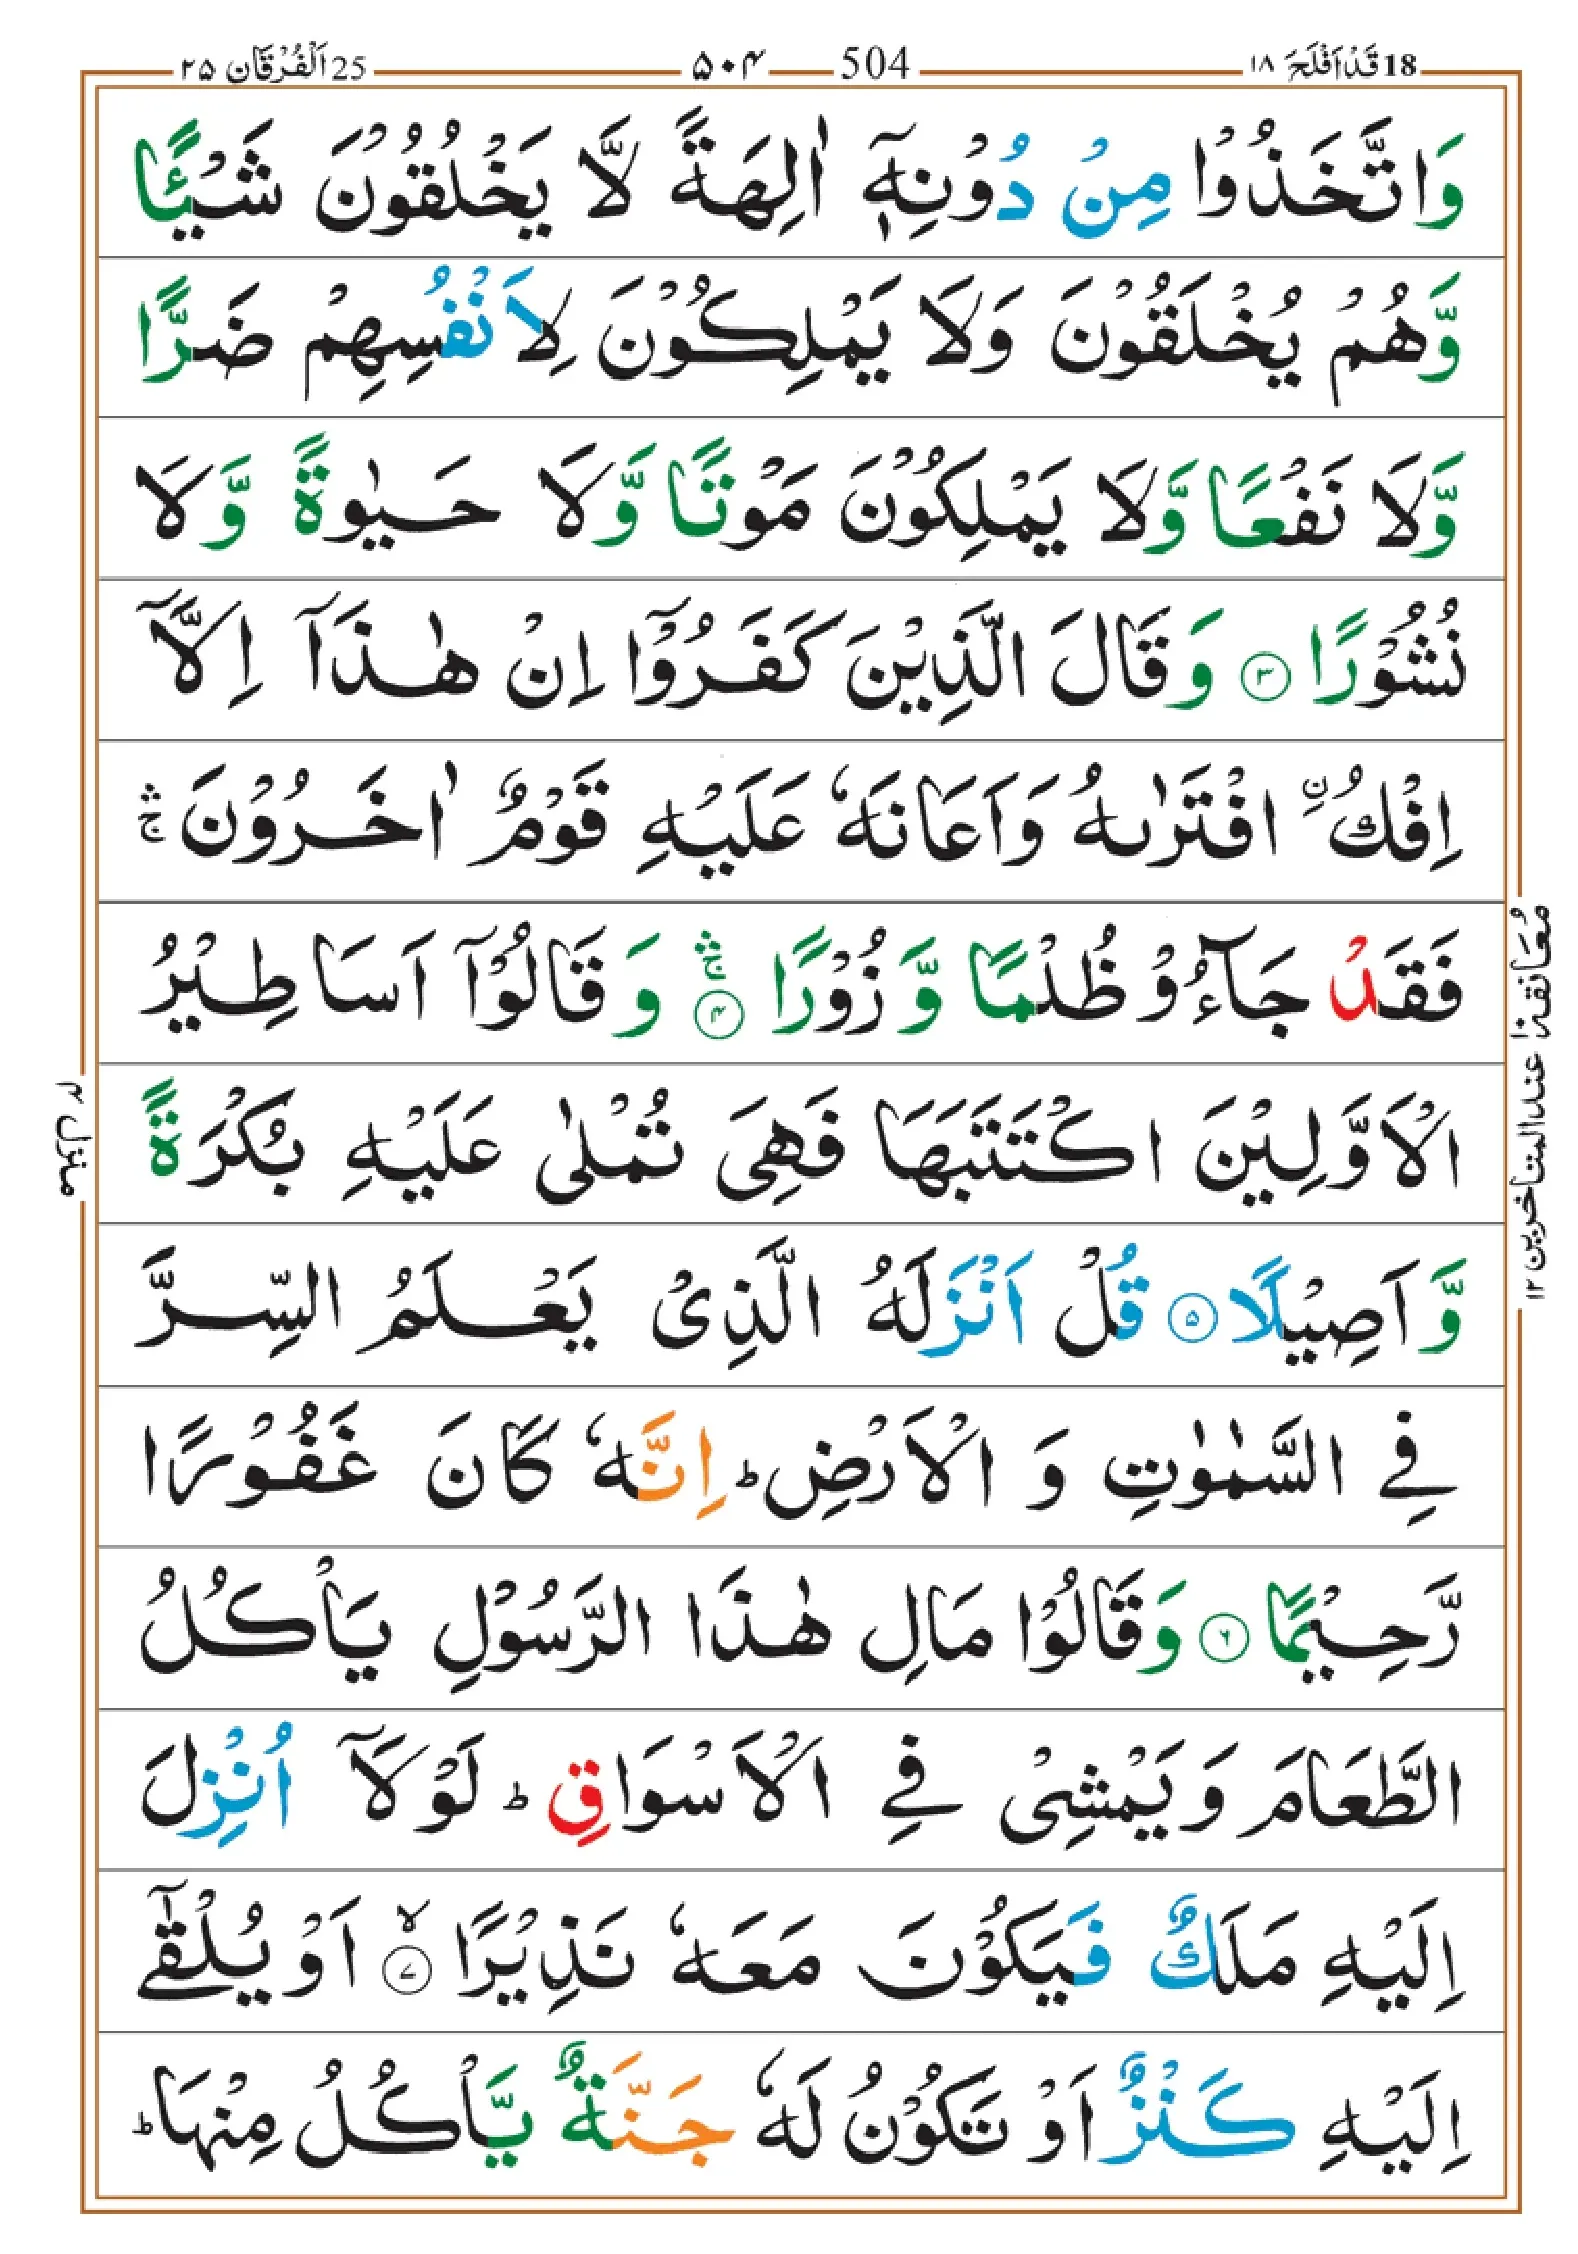 18 قَدْ اَفْلَحَ ١٨
504 ۵۰۴
25 اَلْفُرْقَان ۲۵
وَاتَّخَذُوْا مِنْ دُوْنِهٖۤ اٰلِهَةً لَّا يَخْلُقُوْنَ شَيْـًٔا
وَّهُمْ يُخْلَقُوْنَ وَلَا يَمْلِكُوْنَ لِاَنْفُسِهِمْ ضَرًّا
وَّلَا نَفْعًا وَّلَا يَمْلِكُوْنَ مَوْتًا وَّلَا حَيٰوةً وَّلَا
نُشُوْرًا ۝۳ وَقَالَ الَّذِيْنَ كَفَرُوْۤا اِنْ هٰذَاۤ اِلَّاۤ
اِفْكُ ۨ افْتَرٰىهُ وَاَعَانَهٗ عَلَيْهِ قَوْمٌ اٰخَرُوْنَ ۛۚ
فَقَدْ جَآءُوْ ظُلْمًا وَّ زُوْرًا ۝۴ۛۚ وَ قَالُوْۤا اَسَاطِيْرُ
الْاَوَّلِيْنَ اكْتَتَبَهَا فَهِيَ تُمْلٰى عَلَيْهِ بُكْرَةً
وَّ اَصِيْلًا ۝۵ قُلْ اَنْزَلَهُ الَّذِيْ يَعْلَمُ السِّرَّ
فِي السَّمٰوٰتِ وَ الْاَرْضِ ؕ اِنَّهٗ كَانَ غَفُوْرًا
رَّحِيْمًا ۝۶ وَقَالُوْا مَالِ هٰذَا الرَّسُوْلِ يَاْكُلُ
الطَّعَامَ وَيَمْشِيْ فِي الْاَسْوَاقِ ؕ لَوْلَاۤ اُنْزِلَ
اِلَيْهِ مَلَكٌ فَيَكُوْنَ مَعَهٗ نَذِيْرًا ۝۷ۙ اَوْ يُلْقٰۤى
اِلَيْهِ كَنْزٌ اَوْ تَكُوْنُ لَهٗ جَنَّةٌ يَّاْكُلُ مِنْهَا ؕ
مُعَانقة ١٠ عند المتاخرین ۱۲
منزل ۴